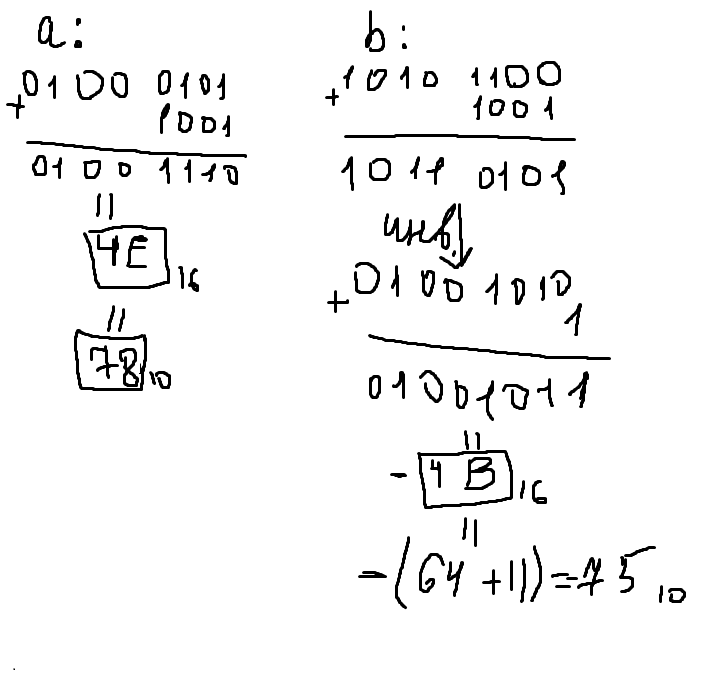 a:
+0100 0101
1001
0100 1110
||
4E 16
||
78 10
b:
+1010 1100
1001
1011 0101
инв.
+0100 1010
1
01001011
||
- 4B 16
||
-(64+11)=75 10